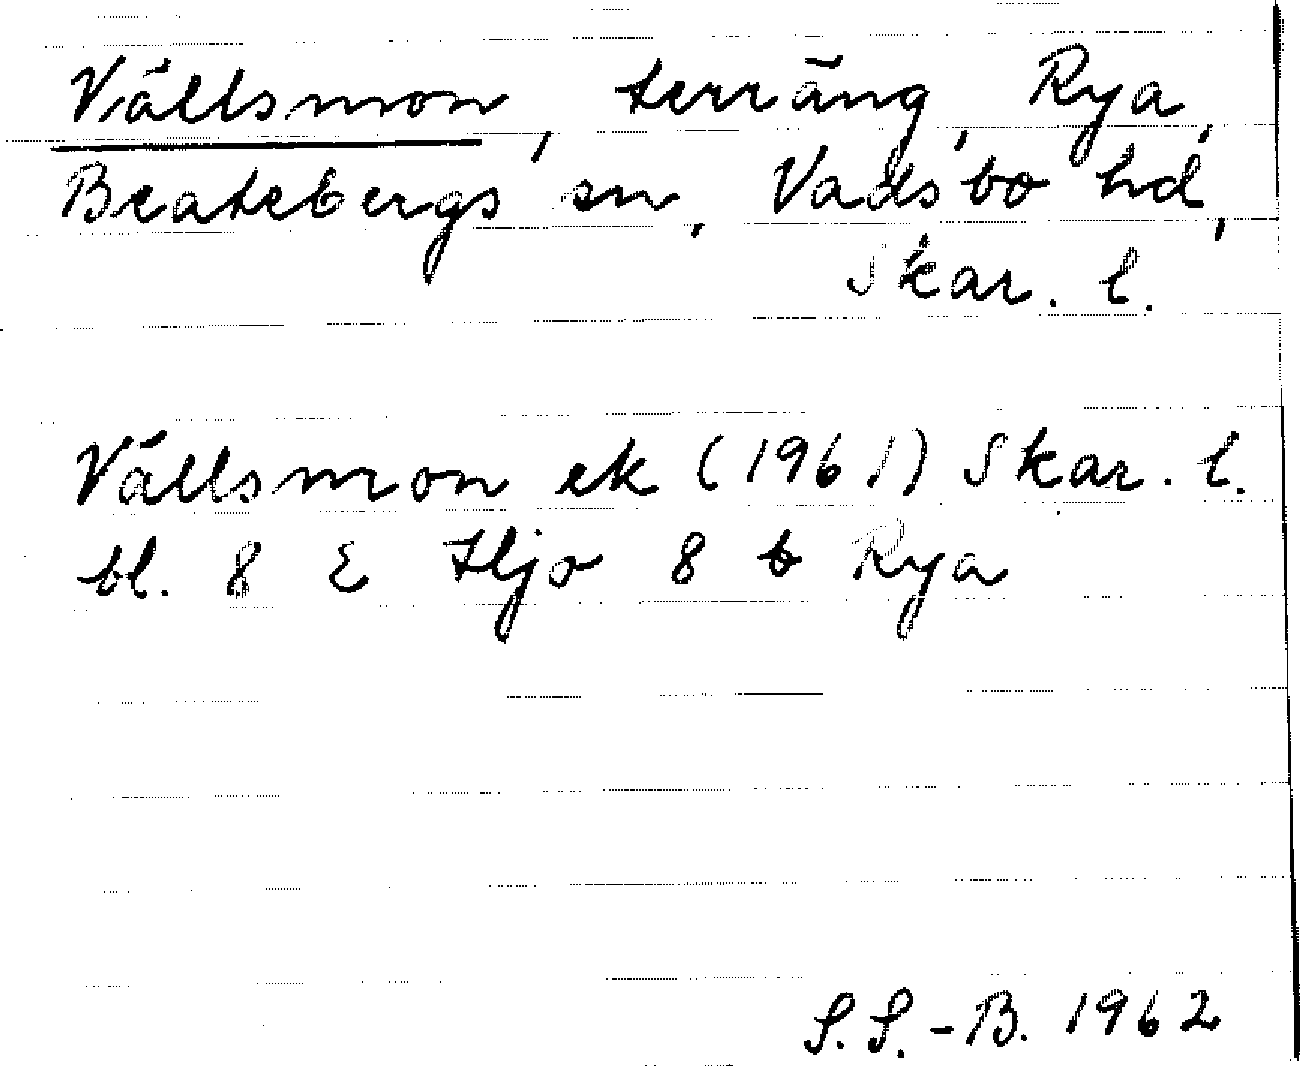 Vällsmon, terräng, Rya,
Beatebergs sn, Vadsbo hd,
Skar. l.
Vällsmon ek (1961) Skar. l.
bl. 8 E Hjo 8 b Rya
S.S.-B. 1962